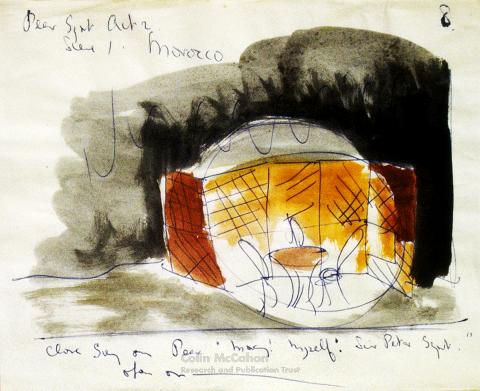 Peer Gynt Act 2
8.
Scene 1. Morocco
Colin McCahon
Research and Publication Trust
"Close on Peer "myself". Sir Peter Gynt."
open on